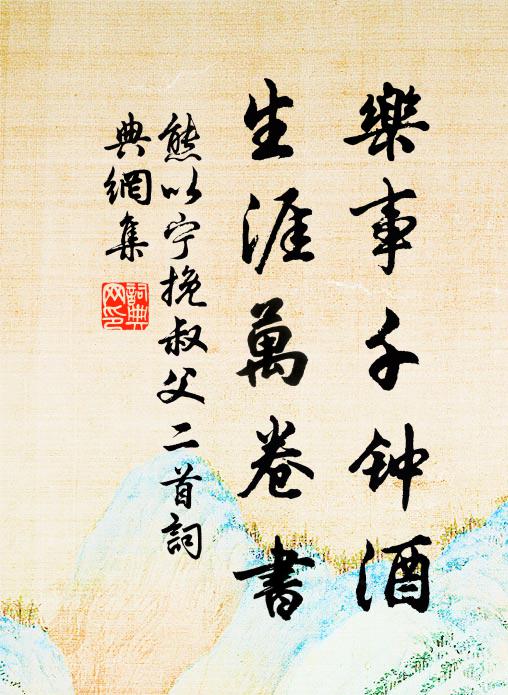 樂事千钟酒
生涯萬卷書
熊以宁挽叔父二首詞
典網集
詞典
网印